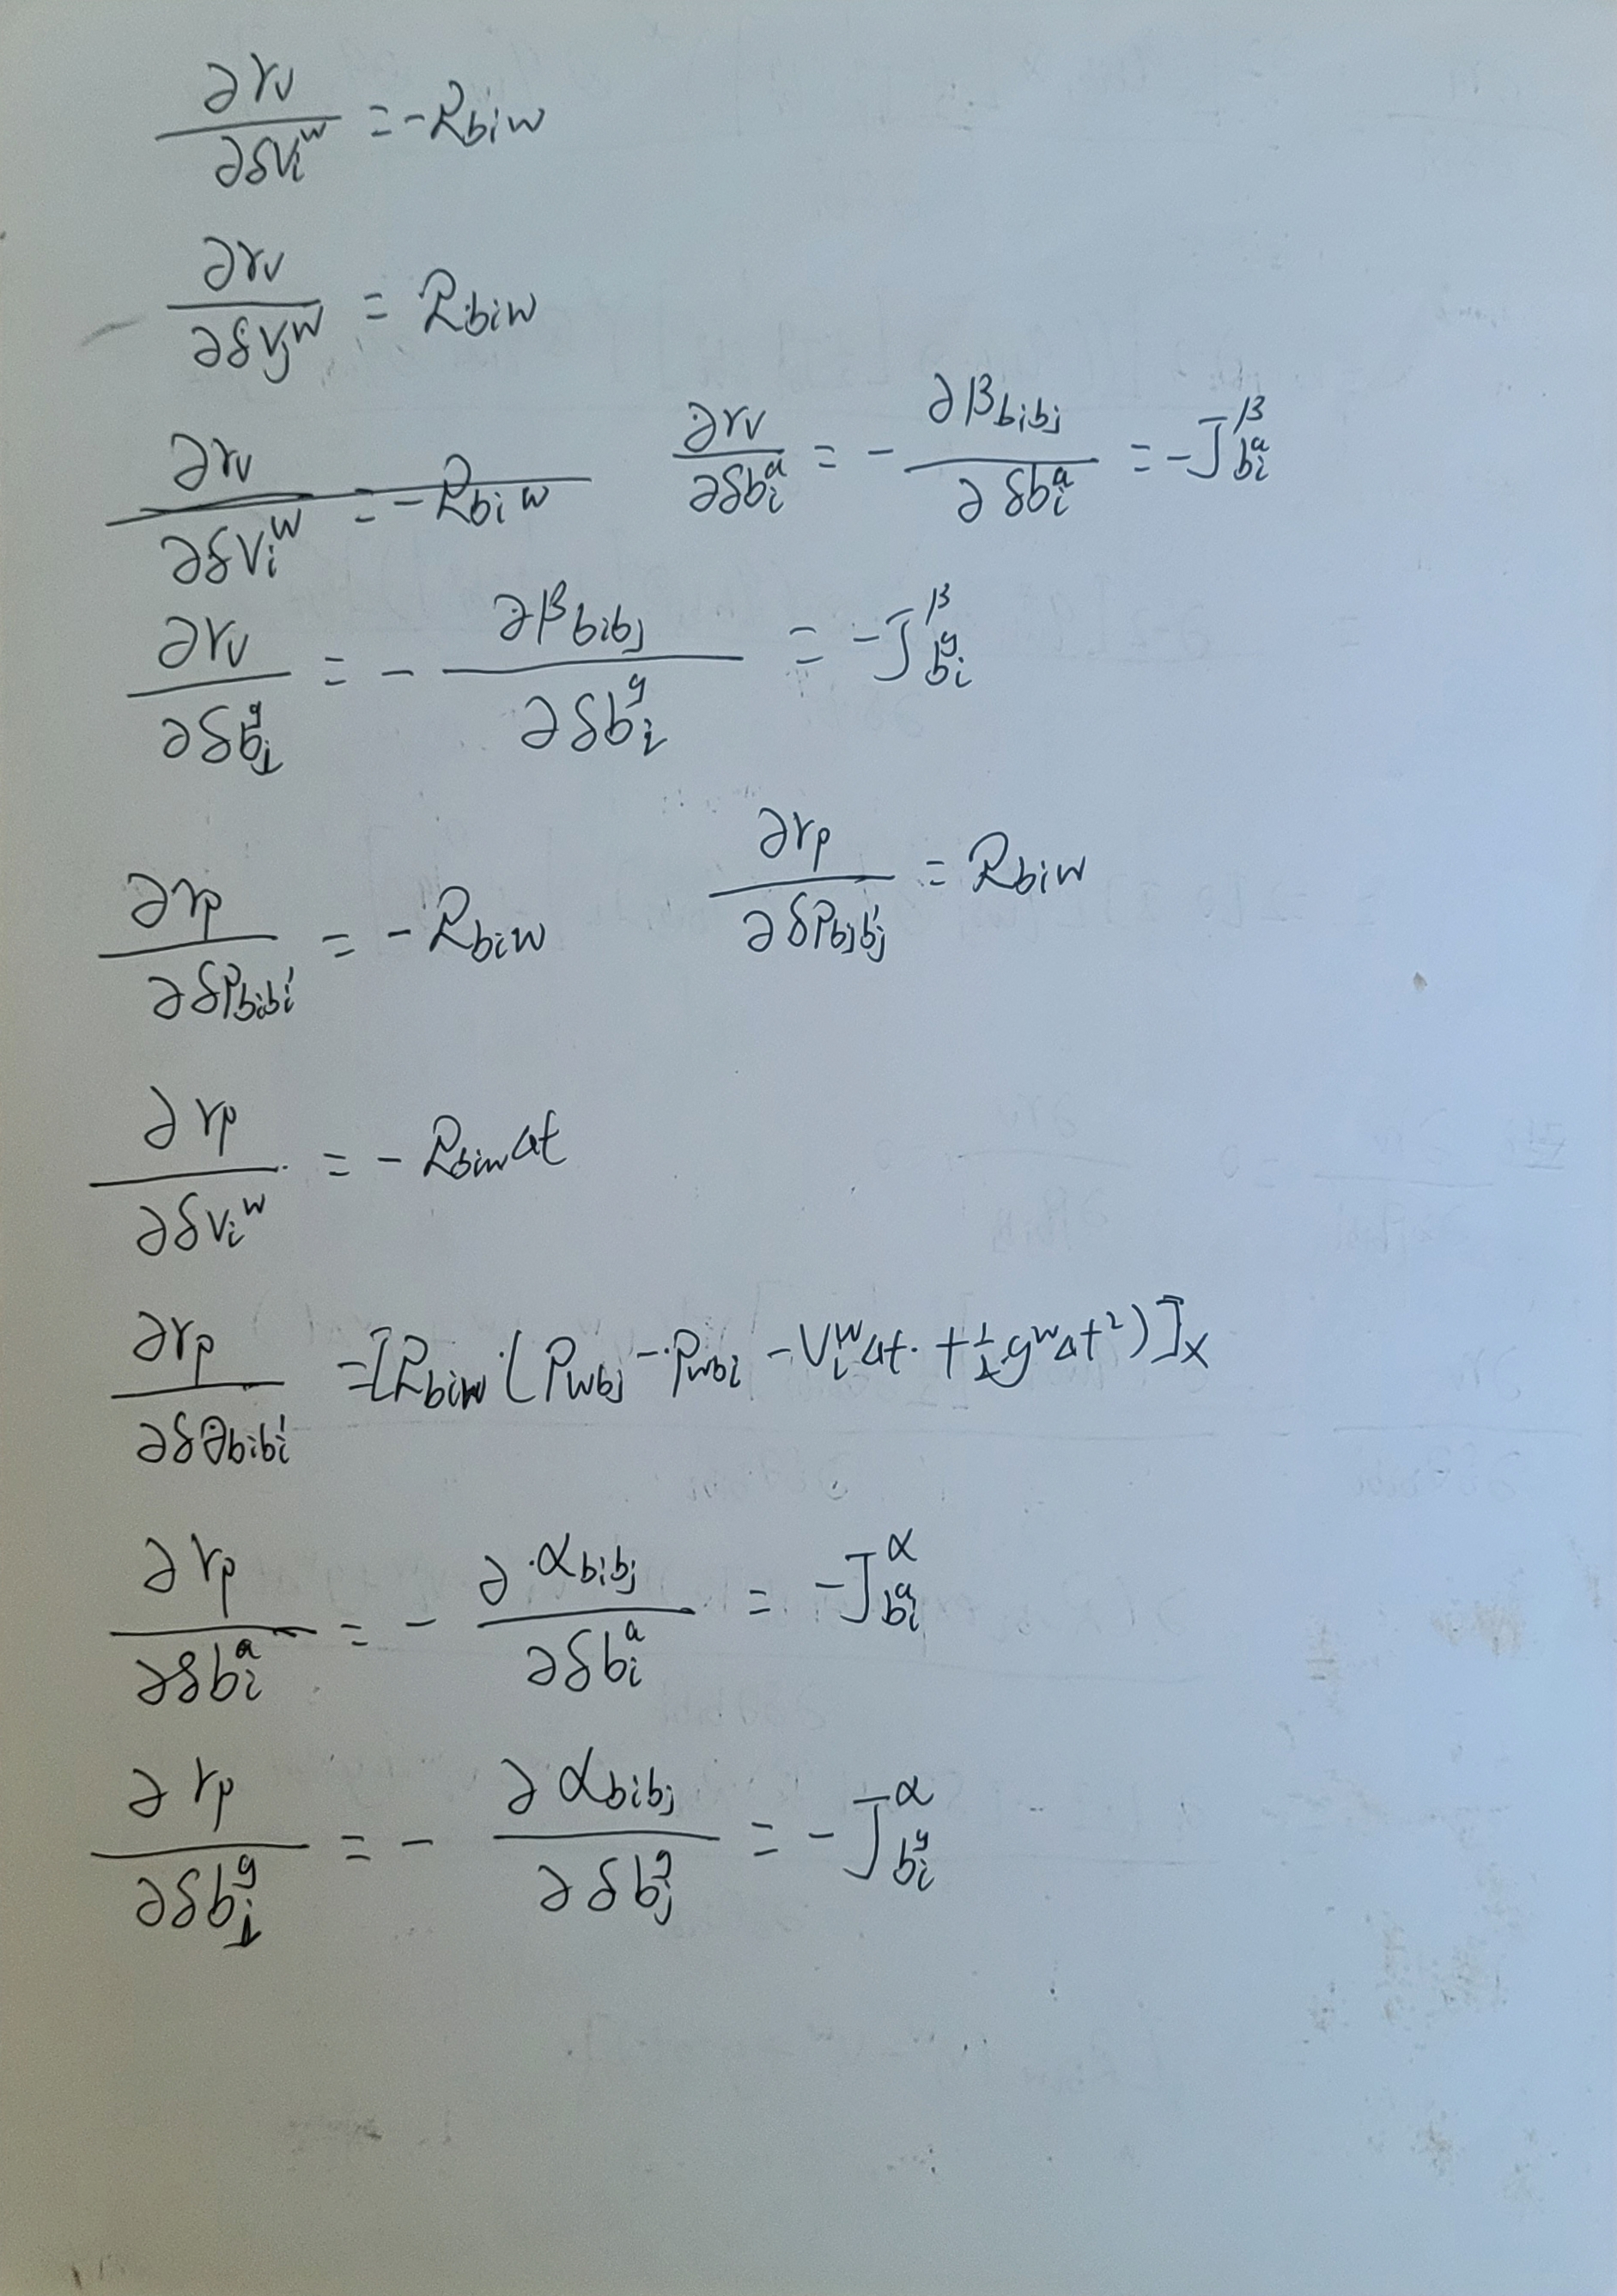 ∂r_v / ∂δv_i^w = -R_{b_i w}
∂r_v / ∂δv_j^w = R_{b_i w}
∂r_v / ∂δv_i^w = -R_{b_i w}
∂r_v / ∂δb_i^a = - ∂β_{b_i b_j} / ∂δb_i^a = -J_{b_i^a}^β
∂r_v / ∂δb_i^g = - ∂β_{b_i b_j} / ∂δb_i^g = -J_{b_i^g}^β
∂r_p / ∂δp_{b_i b_i'} = -R_{b_i w}
∂r_p / ∂δp_{b_j b_j'} = R_{b_i w}
∂r_p / ∂δv_i^w = -R_{b_i w} Δt
∂r_p / ∂δθ_{b_i b_i'} = [R_{b_i w} · (p_{wb_j} - p_{wb_i} - v_i^w Δt + ½ g^w Δt²)]_×
∂r_p / ∂δb_i^a = - ∂α_{b_i b_j} / ∂δb_i^a = -J_{b_i^a}^α
∂r_p / ∂δb_i^g = - ∂α_{b_i b_j} / ∂δb_j^g = -J_{b_i^g}^α